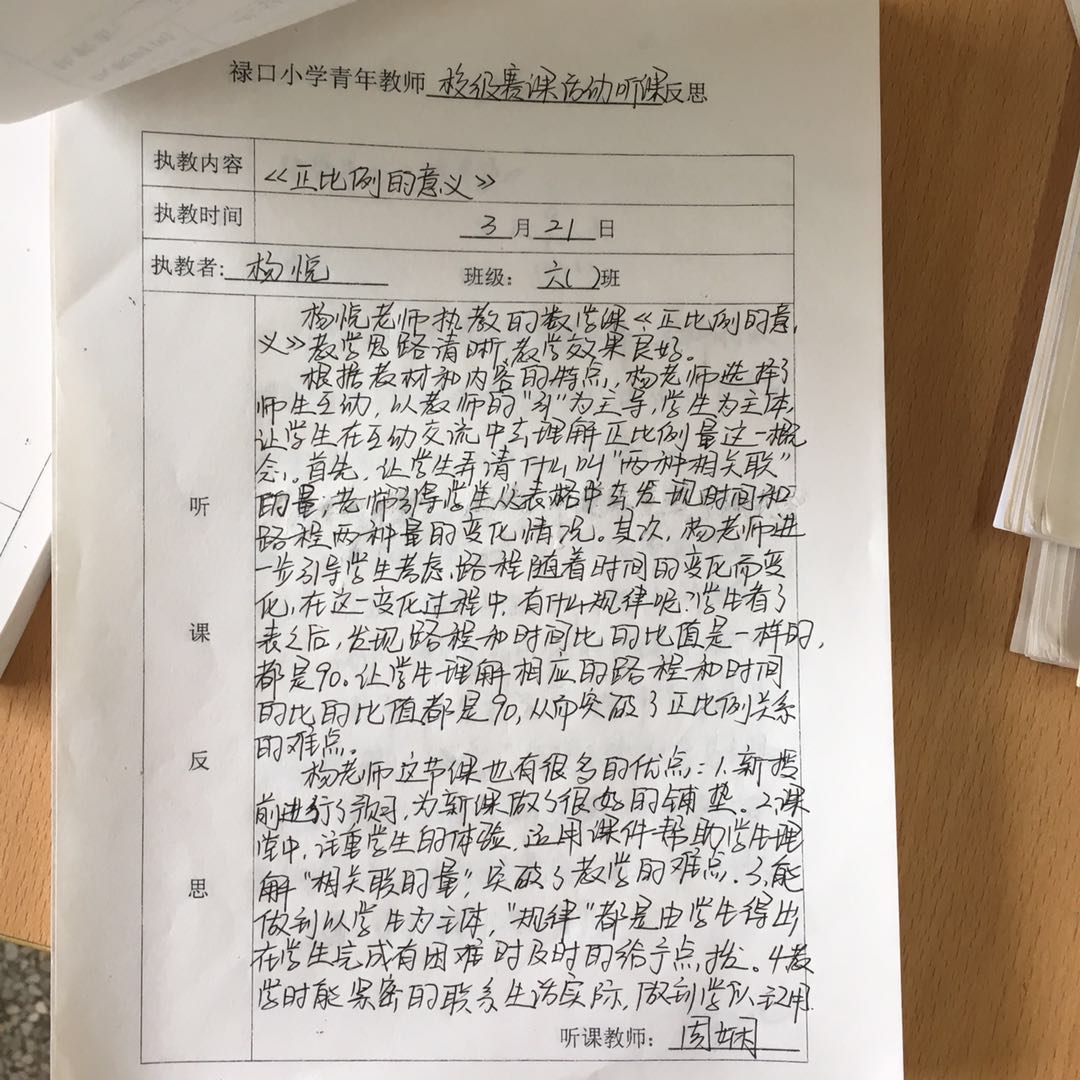 禄口小学青年教师 校级赛课活动听课反思
执教内容 《正比例的意义》
执教时间 3月21日
执教者: 杨悦 班级: 六( )班
听课反思
杨悦老师执教的数学课《正比例的意
义》教学思路清晰,教学效果良好。
根据教材和内容的特点,杨老师选择了
师生互动,以教师的"引"为主导,学生为主体,
让学生在互动交流中去理解正比例量这一概
念。首先,让学生弄清什么叫"两种相关联"
的量,老师引导学生从表格中去发现时间和
路程两种量的变化情况。其次,杨老师进
一步引导学生考虑,路程随着时间的变化而变
化,在这一变化过程中,有什么规律呢?学生看了
表之后,发现路程和时间比的比值是一样的,
都是90。让学生理解相应的路程和时间
的比的比值都是90,从而突破了正比例关系
的难点。
杨老师这节课也有很多的优点:1.新授
前进行了预习,为新课做了很好的铺垫。2.课
堂中,注重学生的体验,运用课件帮助学生理
解"相关联的量",突破了教学的难点。3.能
做到以学生为主体,"规律"都是由学生得出
在学生完成有困难时及时的给予点拨。4.教
学时能紧密的联系生活实际,做到学以致用.
听课教师: 周娴